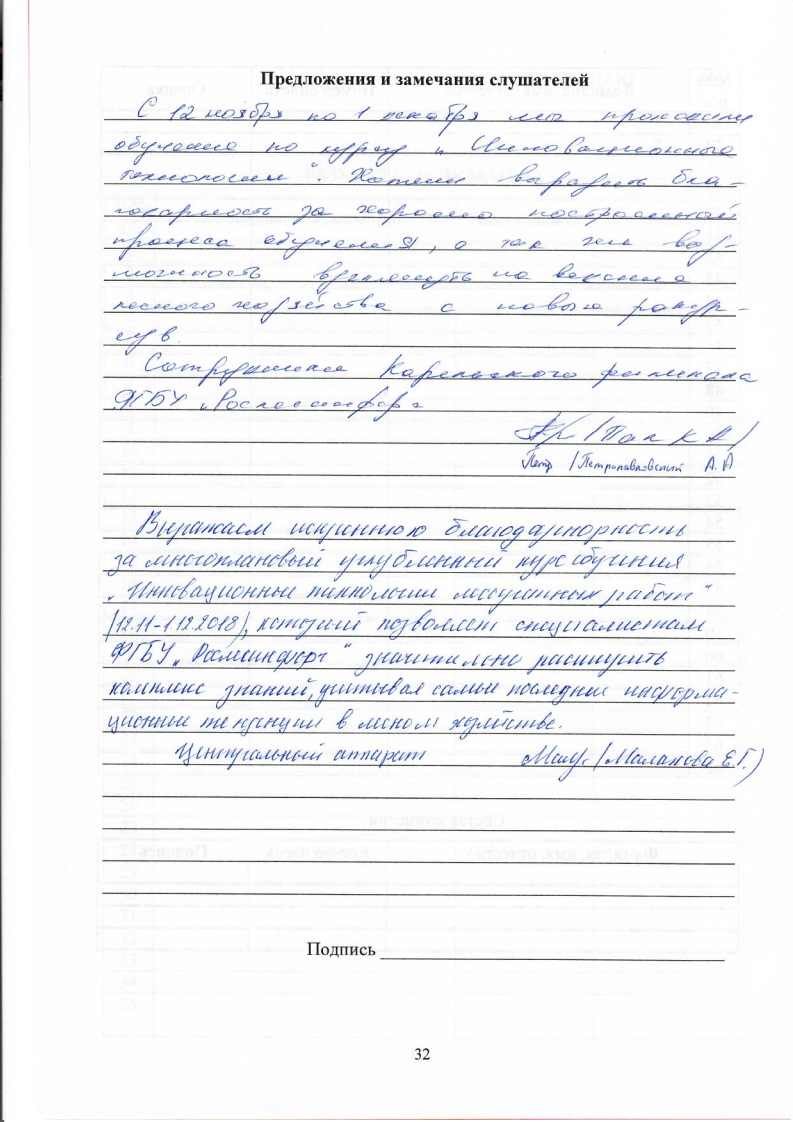 Предложения и замечания слушателей
С 12 ноября по 1 декабря мы проходили
обучение по курсу „Инновационные
технологии". Хотели выразить бла-
годарность за хорошо построенный
процесс обучения, а так же воз-
можность взглянуть на ведение
лесного хозяйства с новых ракур-
сов.
Сотрудники Карельского филиала
ФГБУ „Рослесинфорг
/Пак К А/
/Петропавловский А. А
Выражаем искреннюю благодарнорность
за многоплановый углубленный курс обучения
„Инновационные технологии лесоучетных работ"
(12.11-1.12.2018), который позволяет специалистам
ФГБУ „Рослесинфорг" значительно расширить
комплекс знаний, учитывая самые последние информа-
ционные тенденции в лесном хозяйстве.
Центральный аппарат (Малахова Е.Г.)
Подпись
32